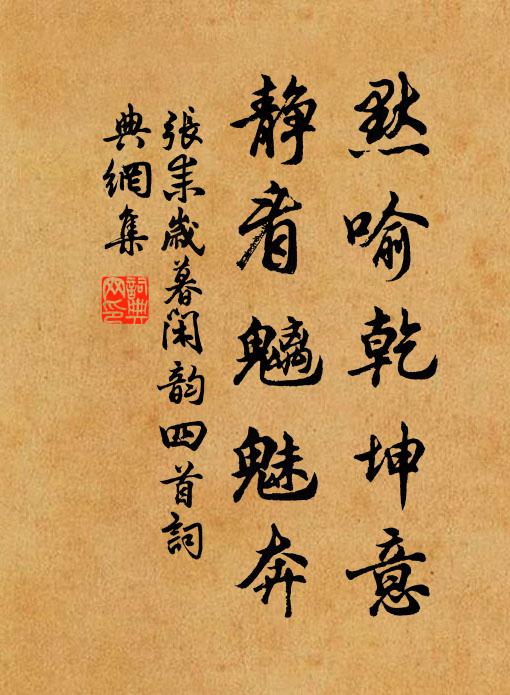 黙喻乾坤意
静看魑魅奔
張耒歲暮閑韵四首詞
典網集
詞典
网印